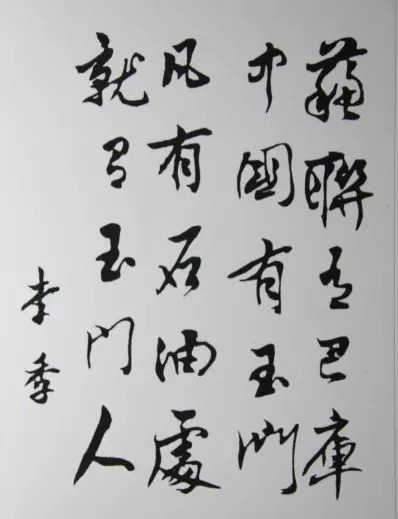 蘇聯有巴庫
中國有玉門
凡有石油處
就有玉門人
李季